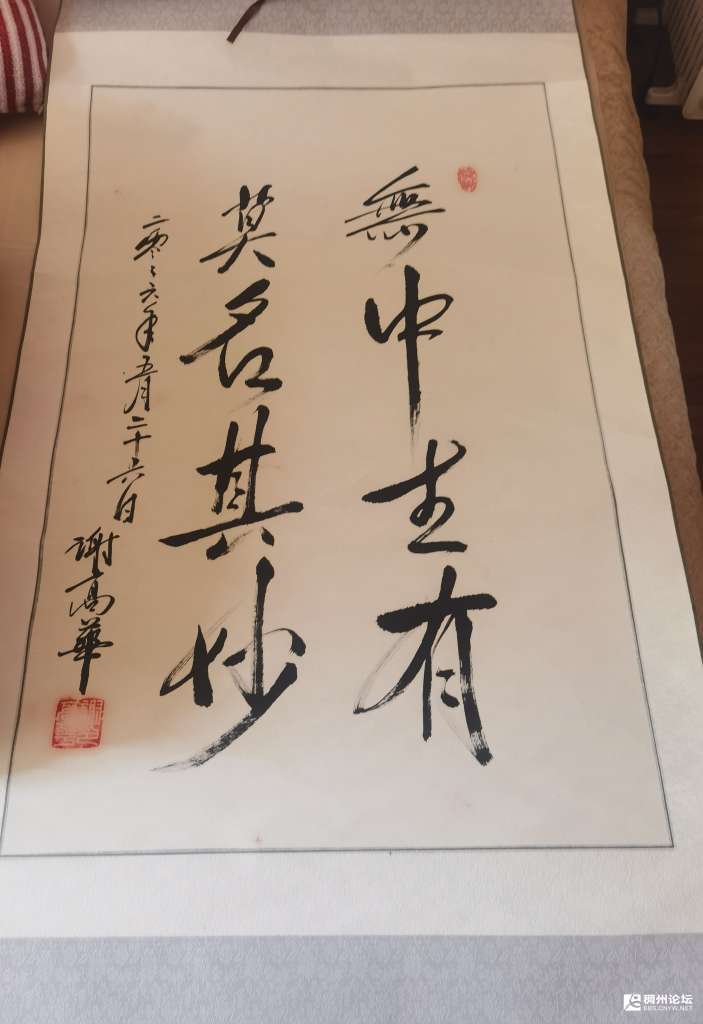 無中生有
莫名其妙
二零零六年五月二十六日
謝高華
稠州论坛
BBS.CNYW.NET